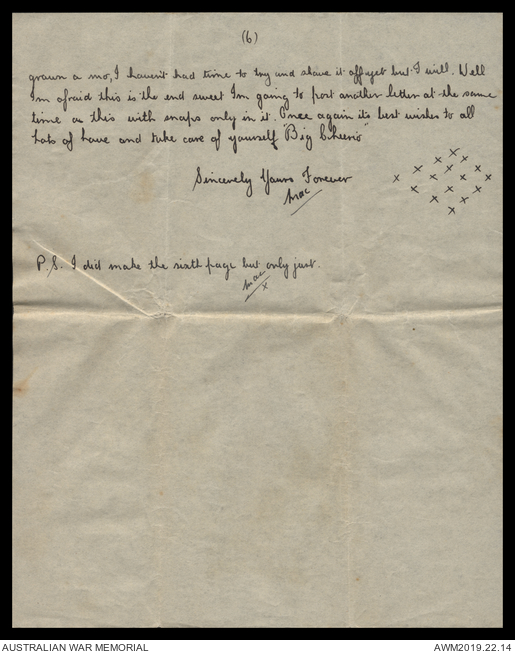 (6)
grown a mo, I haven't had time to try and shave it off yet but I will. Well
I'm afraid this is the end sweet I'm going to post another letter at the same
time as this with snaps only in it. Once again its best wishes to all
Lots of love and take care of yourself "Big Cheerio"
Sincerely Yours Forever
Mac
x x x x x x x x x x x x x x x x
P.S. I did make the sixth page but only just.
Mac
x
AUSTRALIAN WAR MEMORIAL
AWM2019.22.14